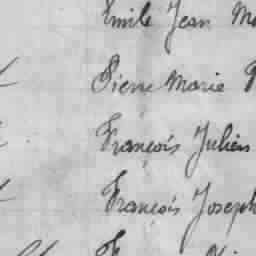 Emile Jean
Pierre Marie
François Julien
François Joseph